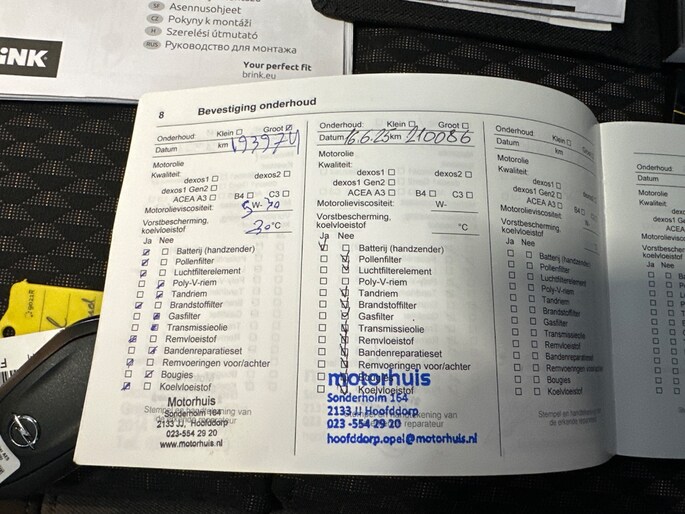 SF Asennusohjeet
CZ Pokyny k montáži
H Szerelési útmutató
RUS Руководство для монтажа
Your perfect fit
brink.eu
8 Bevestiging onderhoud
Onderhoud: Klein Groot
Datum km 193974
Motorolie
Kwaliteit:
dexos1 dexos2
dexos1 Gen2
ACEA A3 B4 C3
Motorolieviscositeit: 5 W- 30
Vorstbescherming,
koelvloeistof 30 °C
Ja Nee
Batterij (handzender)
Pollenfilter
Luchtfilterelement
Poly-V-riem
Tandriem
Brandstoffilter
Gasfilter
Transmissieolie
Remvloeistof
Bandenreparatieset
Remvoeringen voor/achter
Bougies
Koelvloeistof
Motorhuis
Sonderholm 164
2133 JJ, Hoofddorp
023-554 29 20
www.motorhuis.nl
Onderhoud: Klein Groot
Datum 16.6.25 km 210086
Motorolie
Kwaliteit:
dexos1 dexos2
dexos1 Gen2
ACEA A3 B4 C3
Motorolieviscositeit: W-
Vorstbescherming,
koelvloeistof °C
Ja Nee
Batterij (handzender)
Pollenfilter
Luchtfilterelement
Poly-V-riem
Tandriem
Brandstoffilter
Gasfilter
Transmissieolie
Remvloeistof
Bandenreparatieset
Remvoeringen voor/achter
Koelvloeistof
motorhuis
Sonderholm 164
2133 JJ Hoofddorp
023 -554 29 20
hoofddorp.opel@motorhuis.nl
Onderhoud: Klein
Datum km
Motorolie
Kwaliteit:
dexos1
dexos1 Gen2
ACEA A3 B4
Motorolieviscositeit:
W-
Vorstbescherming,
koelvloeistof
Ja Nee
Batterij (handzender)
Pollenfilter
Luchtfilterelement
Poly-V-riem
Tandriem
Brandstoffilter
Gasfilter
Transmissieolie
Remvloeistof
Bandenreparatieset
Remvoeringen voor/achter
Bougies
Koelvloeistof
Stempel en handtekening van
de erkende reparateur
Onderhoud:
Datum
Motorolie
Kwaliteit:
dexos1
dexos1
ACEA
Vorstbescherming,
koelvloeistof
Ja Nee